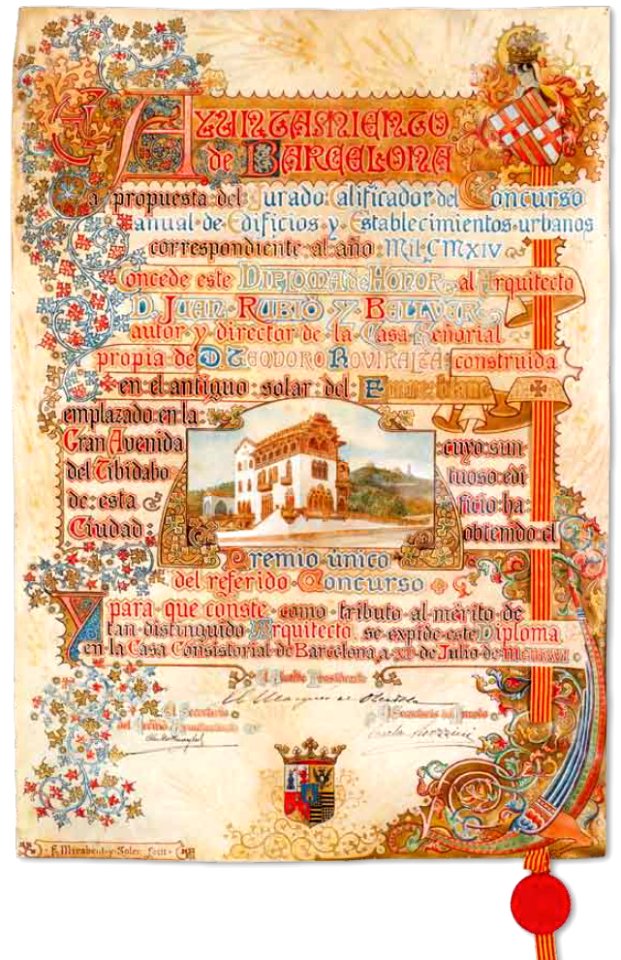 AYUNTAMIENTO
de BARCELONA
a propuesta del Jurado Calificador del Concurso
anual de Edificios y Establecimientos urbanos
correspondiente al año MIL CMXIV
Concede este DIPLOMA de HONOR al Arquitecto
D. JUAN RUBIÓ Y BELLVER
autor y director de la Casa Señorial
propia de D. TEODORO ROVIRALTA construida
en el antiguo solar del
emplazado en la
Gran Avenida
del Tibidabo
de esta
Ciudad:
cuyo sun
tuoso edi
ficio ha
obtenido el
Premio único
del referido Concurso
Y para que conste como tributo al mérito de
tan distinguido Arquitecto, se expide este Diploma,
en la Casa Consistorial de Barcelona, a de Julio de
El Alcalde Presidente
El Secretario
F. Mirabent y Soler fecit